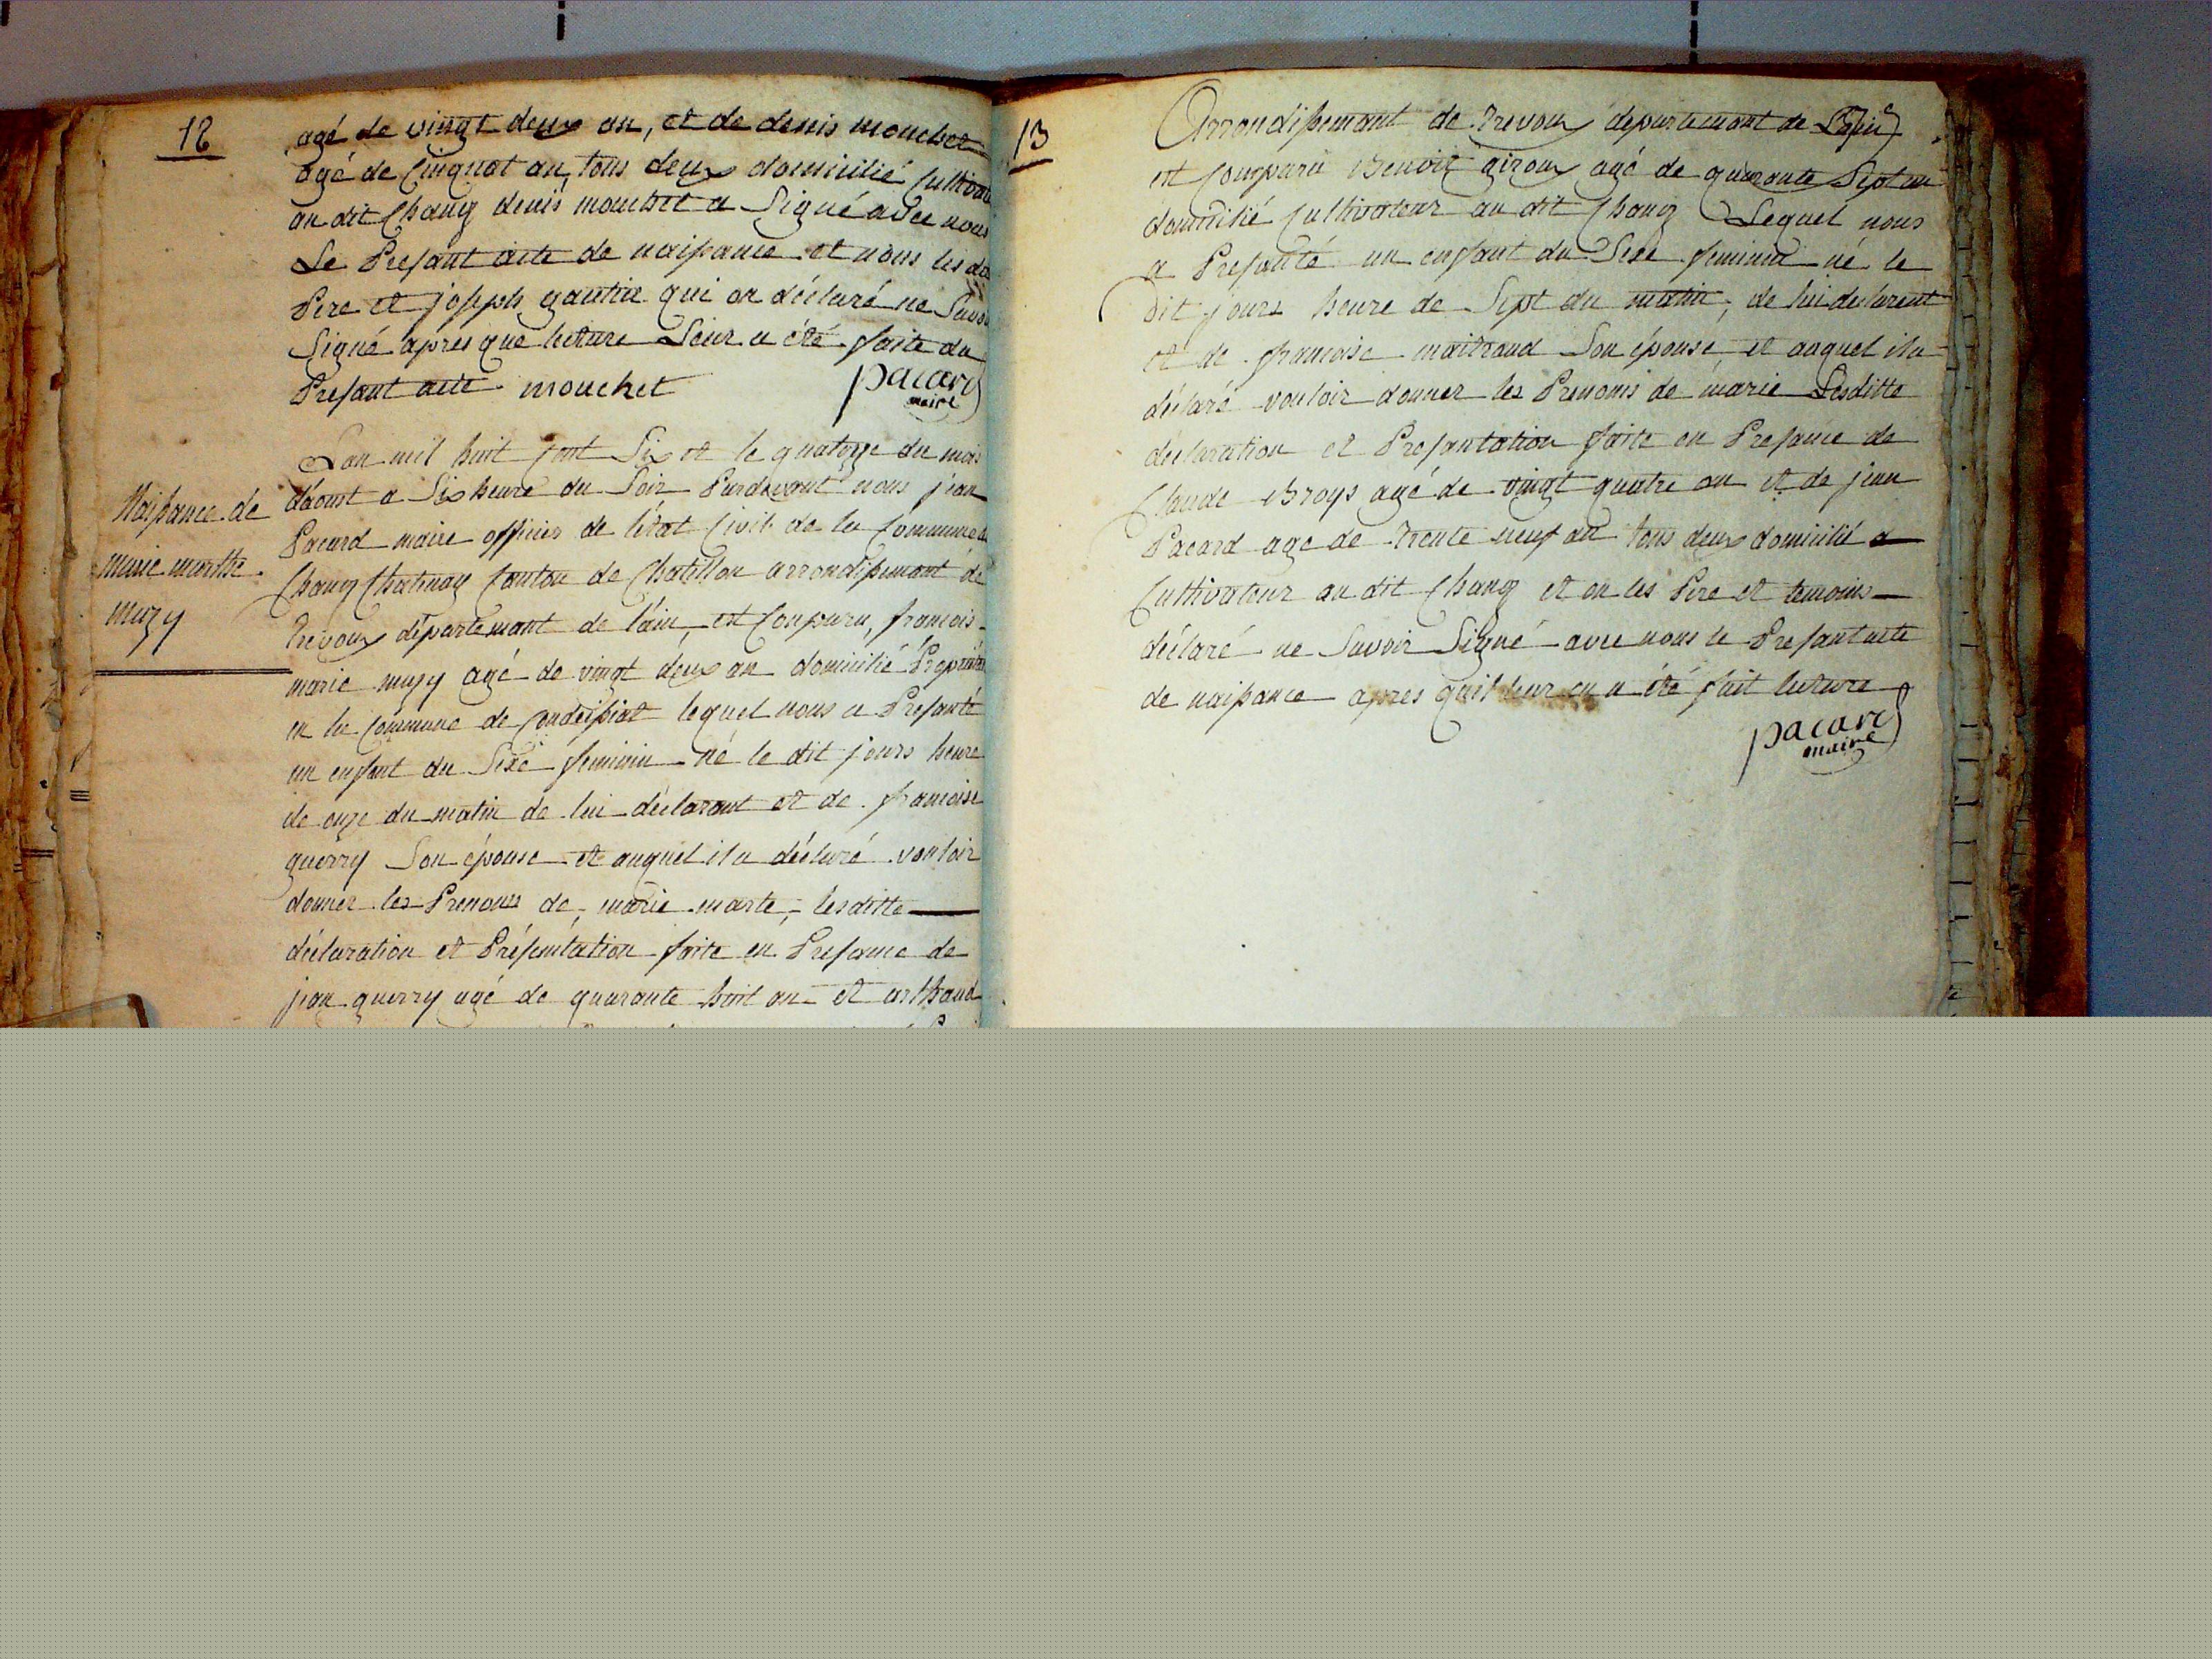 12
agé de vingt deux an, et de denis mouchet
agé de Cinquat an, tous deux domicilié Cultivat
au dit Chanz denis mouchet a Signé avec nous
Le Presant acte de naissance et nous les dit
Pere et joseph gautier qui on déclaré ne Savoir
Signé après que lecture Leur a été faite du
Presant acte mouchet pacard
maire
Naissance de
marie marthe
muzy
Lan mil huit Cent Six et le quatorze du mois
daoust a Six heure du Soir Pardevant nous jean
Pacard maire officier de létat Civil de la Commune de
Chanz Chatenay Canton de Chatillon arrondissemant de
Trevoux départemant de lain, est Comparu, francois
marie muzy agé de vingt deux an domicilié Propriétai
en la Commune de Condeissiat lequel nous a Presanté
un enfant du Sexe feminin né le dit jours heure
de onze du matin de lui déclarant et de francoise
guerry Son épouse et auquel il a déclaré vouloir
donner les Prenoms de, marie marte, lesditte
déclaration et Présentation faite en Presance de
jean guerry agé de quarante huit an et
13
Arrondissemant de Trevoux départemant de Lain
est Comparu Benoit giroux agé de quaronte Sept an
domicilié Cultivateur au dit Chanz Lequel nous
a Presanté un enfant du Sexe feminin né le
dit jours heure de Sept du matin, de lui declarent
et de francoise maitraud Son épouse et auquel il a
déclaré vouloir donner les Prenoms de marie Lesditte
déclaration et Presantation faite en Presance de
Claude Broys agé de vingt quatre an et de jean
Pacard age de trente neuf an tous deux domicilié a
Cultivateur au dit Chanz et on les Pere et temoins
déclaré ne Savoir Signé avec nous le Presant acte
de naissance apres quil leur en a été fait lecture
pacard
maire